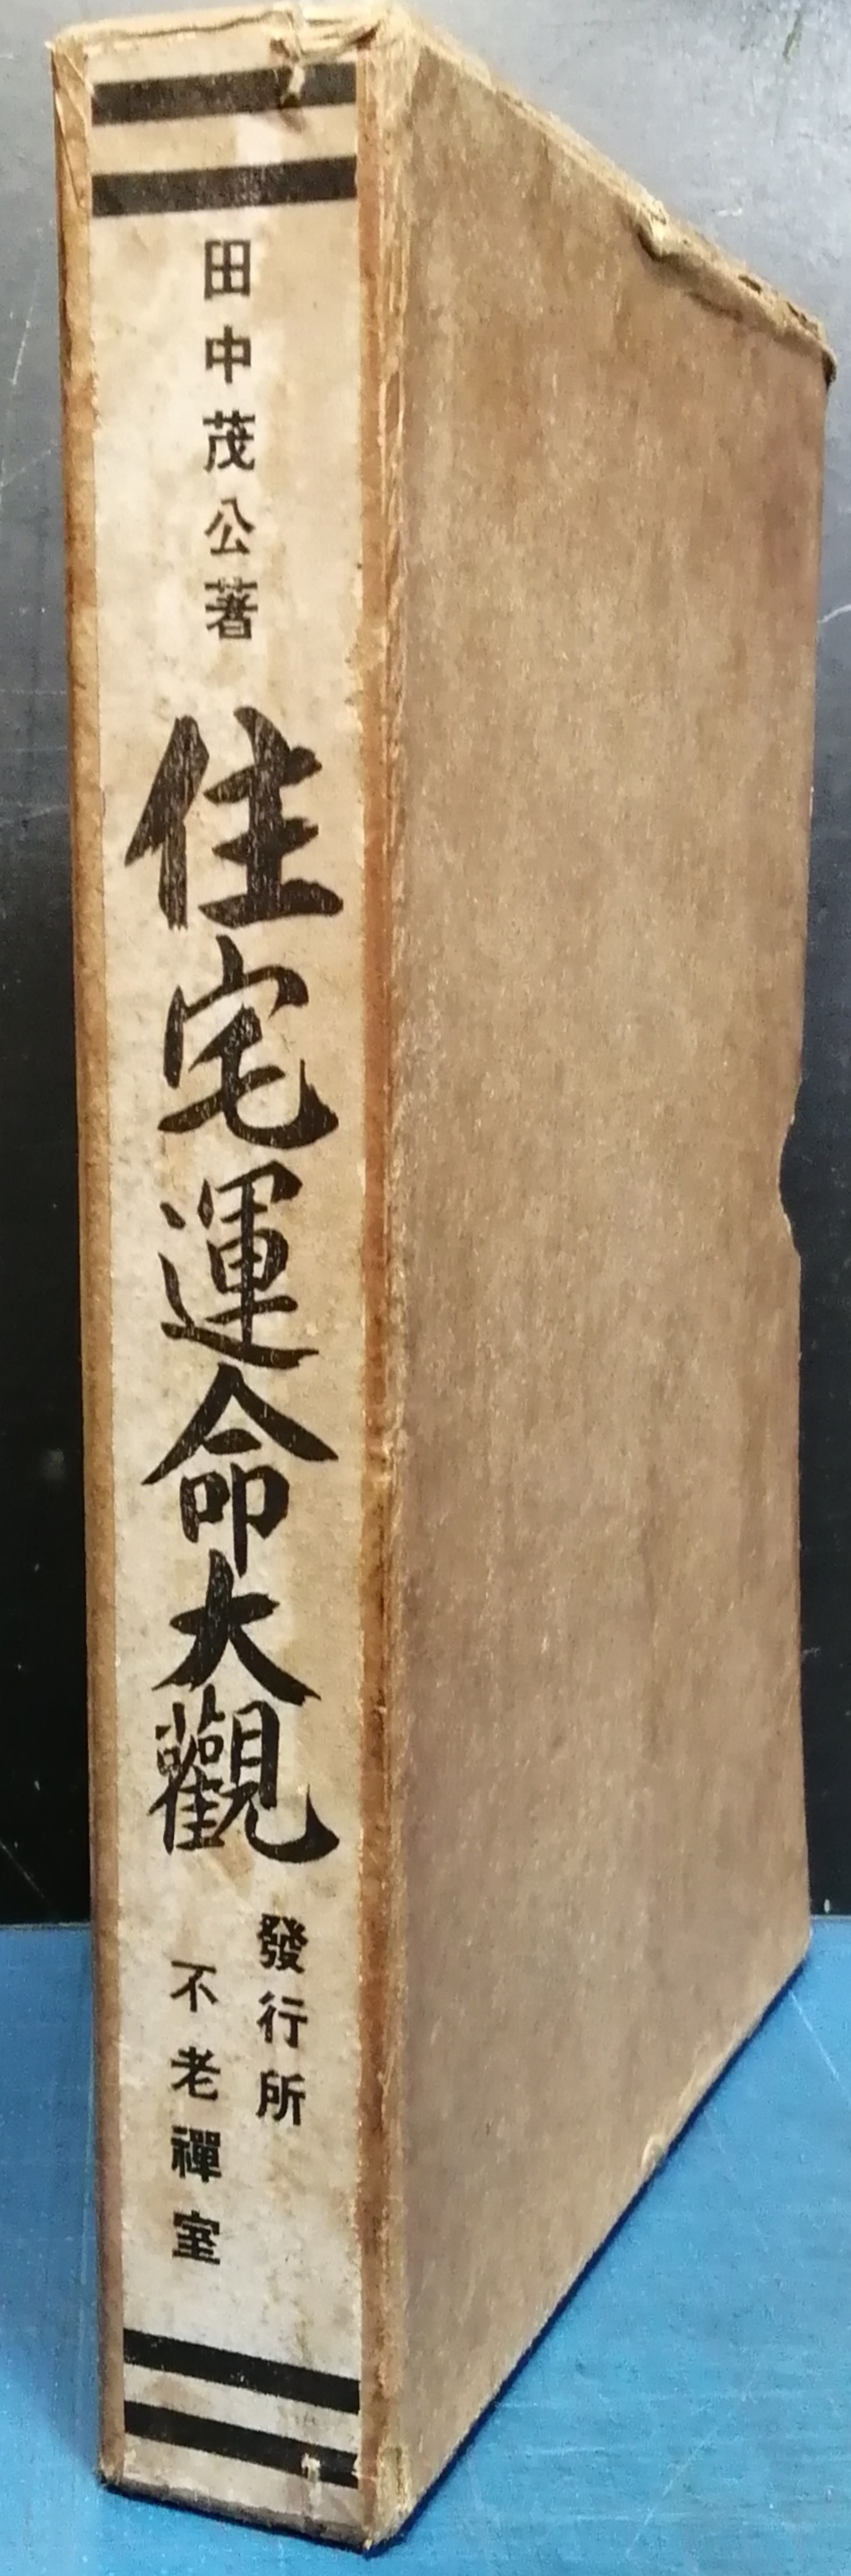 田中茂公著
住宅運命大觀
發行所
不老禪室